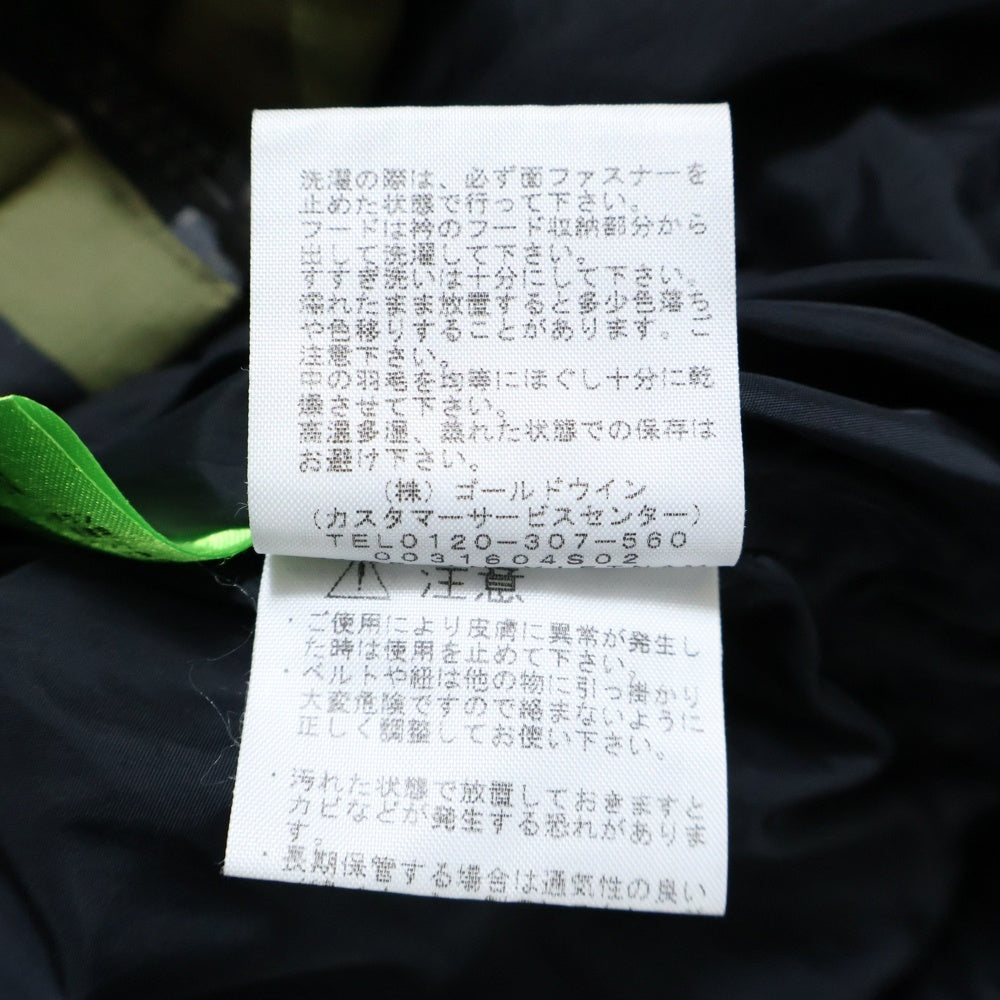 洗濯の際は、必ず面ファスナーを
止めた状態で行って下さい。
フードは衿のフード収納部分から
出して洗濯して下さい。
すすぎ洗いは十分にして下さい。
濡れたまま放置すると多少色落ち
や色移りすることがあります。ご
注意下さい。
中の羽毛を均等にほぐし十分に乾
燥させて下さい。
高温多湿、蒸れた状態での保存は
お避け下さい。
(株) ゴールドウイン
(カスタマーサービスセンター)
TEL0120-307-560
0031604S02
注意
・ご使用により皮膚に異常が発生し
た時は使用を止めて下さい。
・ベルトや紐は他の物に引っ掛かり
大変危険ですので絡まないように
正しく調整してお使い下さい。
・汚れた状態で放置しておきますと
カビなどが発生する恐れがありま
す。
・長期保管する場合は通気性の良い